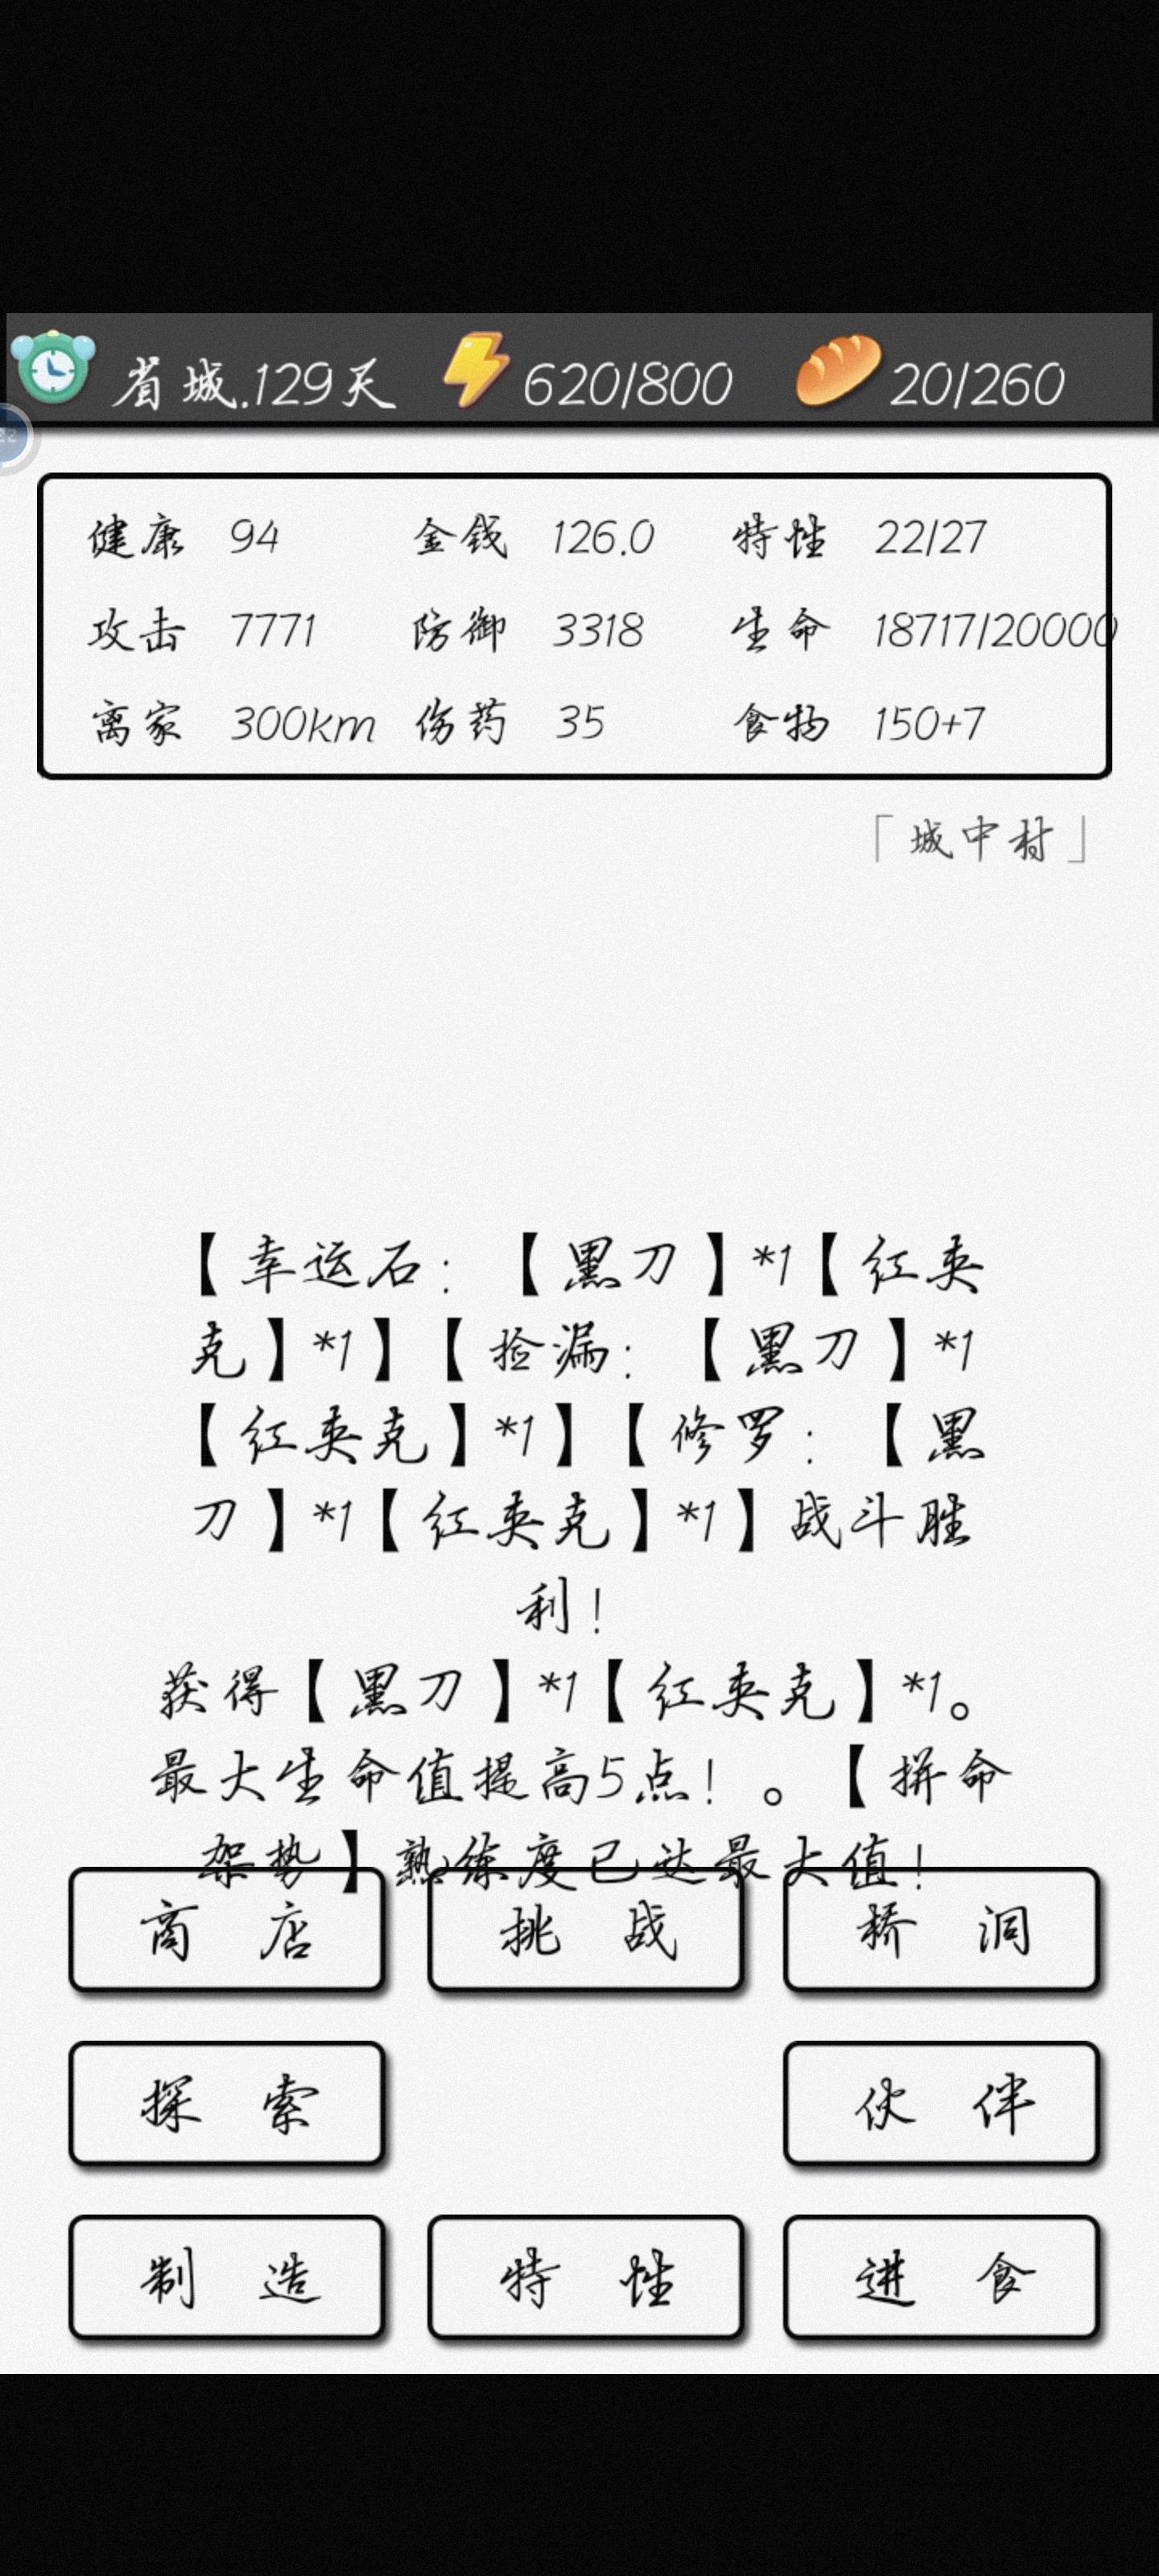 省城.129天 620/800 20/260
健康 94 金钱 126.0 特性 22/27
攻击 7771 防御 3318 生命 18717/20000
离家 300km 伤药 35 食物 150+7
「城中村」
【幸运石：【黑刀】*1【红夹
克】*1】【捡漏：【黑刀】*1
【红夹克】*1】【修罗：【黑
刀】*1【红夹克】*1】战斗胜
利！
获得【黑刀】*1【红夹克】*1。
最大生命值提高5点！。【拼命
架势】熟练度已达最大值！
商店 挑战 桥洞
探索 伙伴
制造 特性 进食